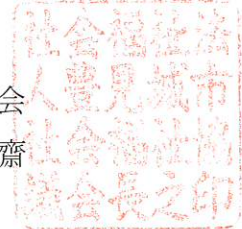 会
齋
社会福祉法
人豊見城市
社会福祉協
議会長之印